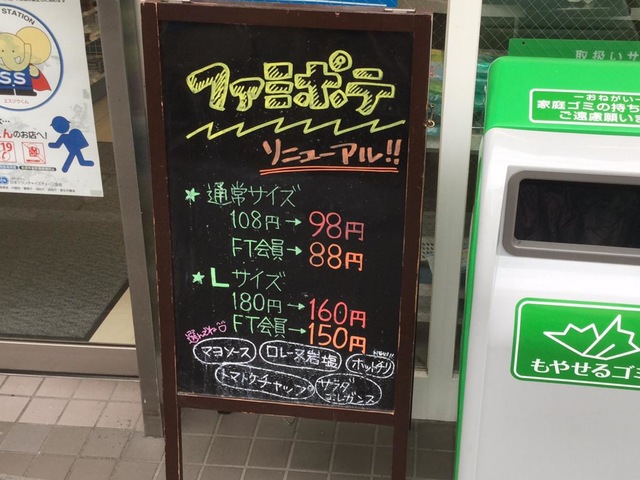 STATION
SS
エスゾウくん
んのお店へ!
19
ファミポテ
リニューアル!!
★通常サイズ
108円→98円
FT会員→88円
★Lサイズ
180円→160円
FT会員→150円
選んでね
マヨソース
ロレーヌ岩塩
ホットチリ
トマトケチャップ
サラダエレガンス
取扱いサ
おねがい
家庭ゴミの持ち
ご遠慮願いま
もやせるゴミ